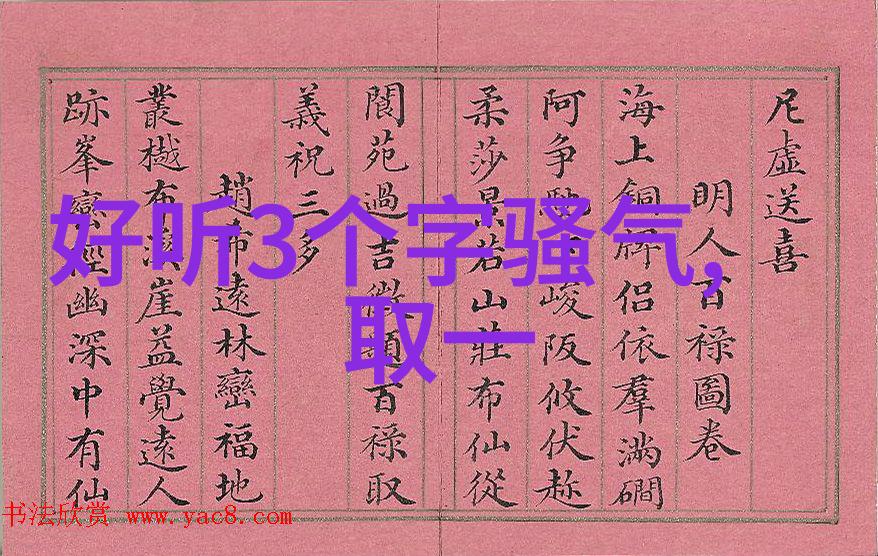 尼虚送喜
明人百禄圖卷
海上銅牌侣依羣滿礀
阿争
峻阪攸伏趂
柔莎
若山莊布仙從
閬苑過吉徵題百禄取
義祝三多
趙布遠林巒福地
叢樾布濱崖益覺遠人
跡峯巒徑幽深中有仙
好听3个字骚气，
取一
书法欣赏 www.yac8.com